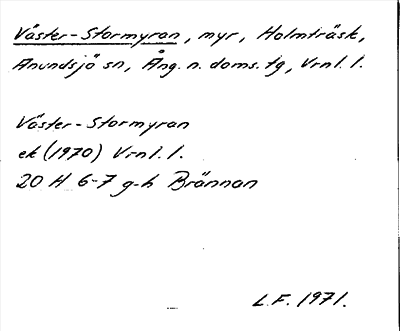 Väster-Stormyran, myr, Holmträsk,
Anundsjö sn, Ång. n. doms. tg, Vrnl. l.
Väster-Stormyran
ek (1970) Vrnl. l.
20 H 6-7 g-h Brännan
L.F. 1971.